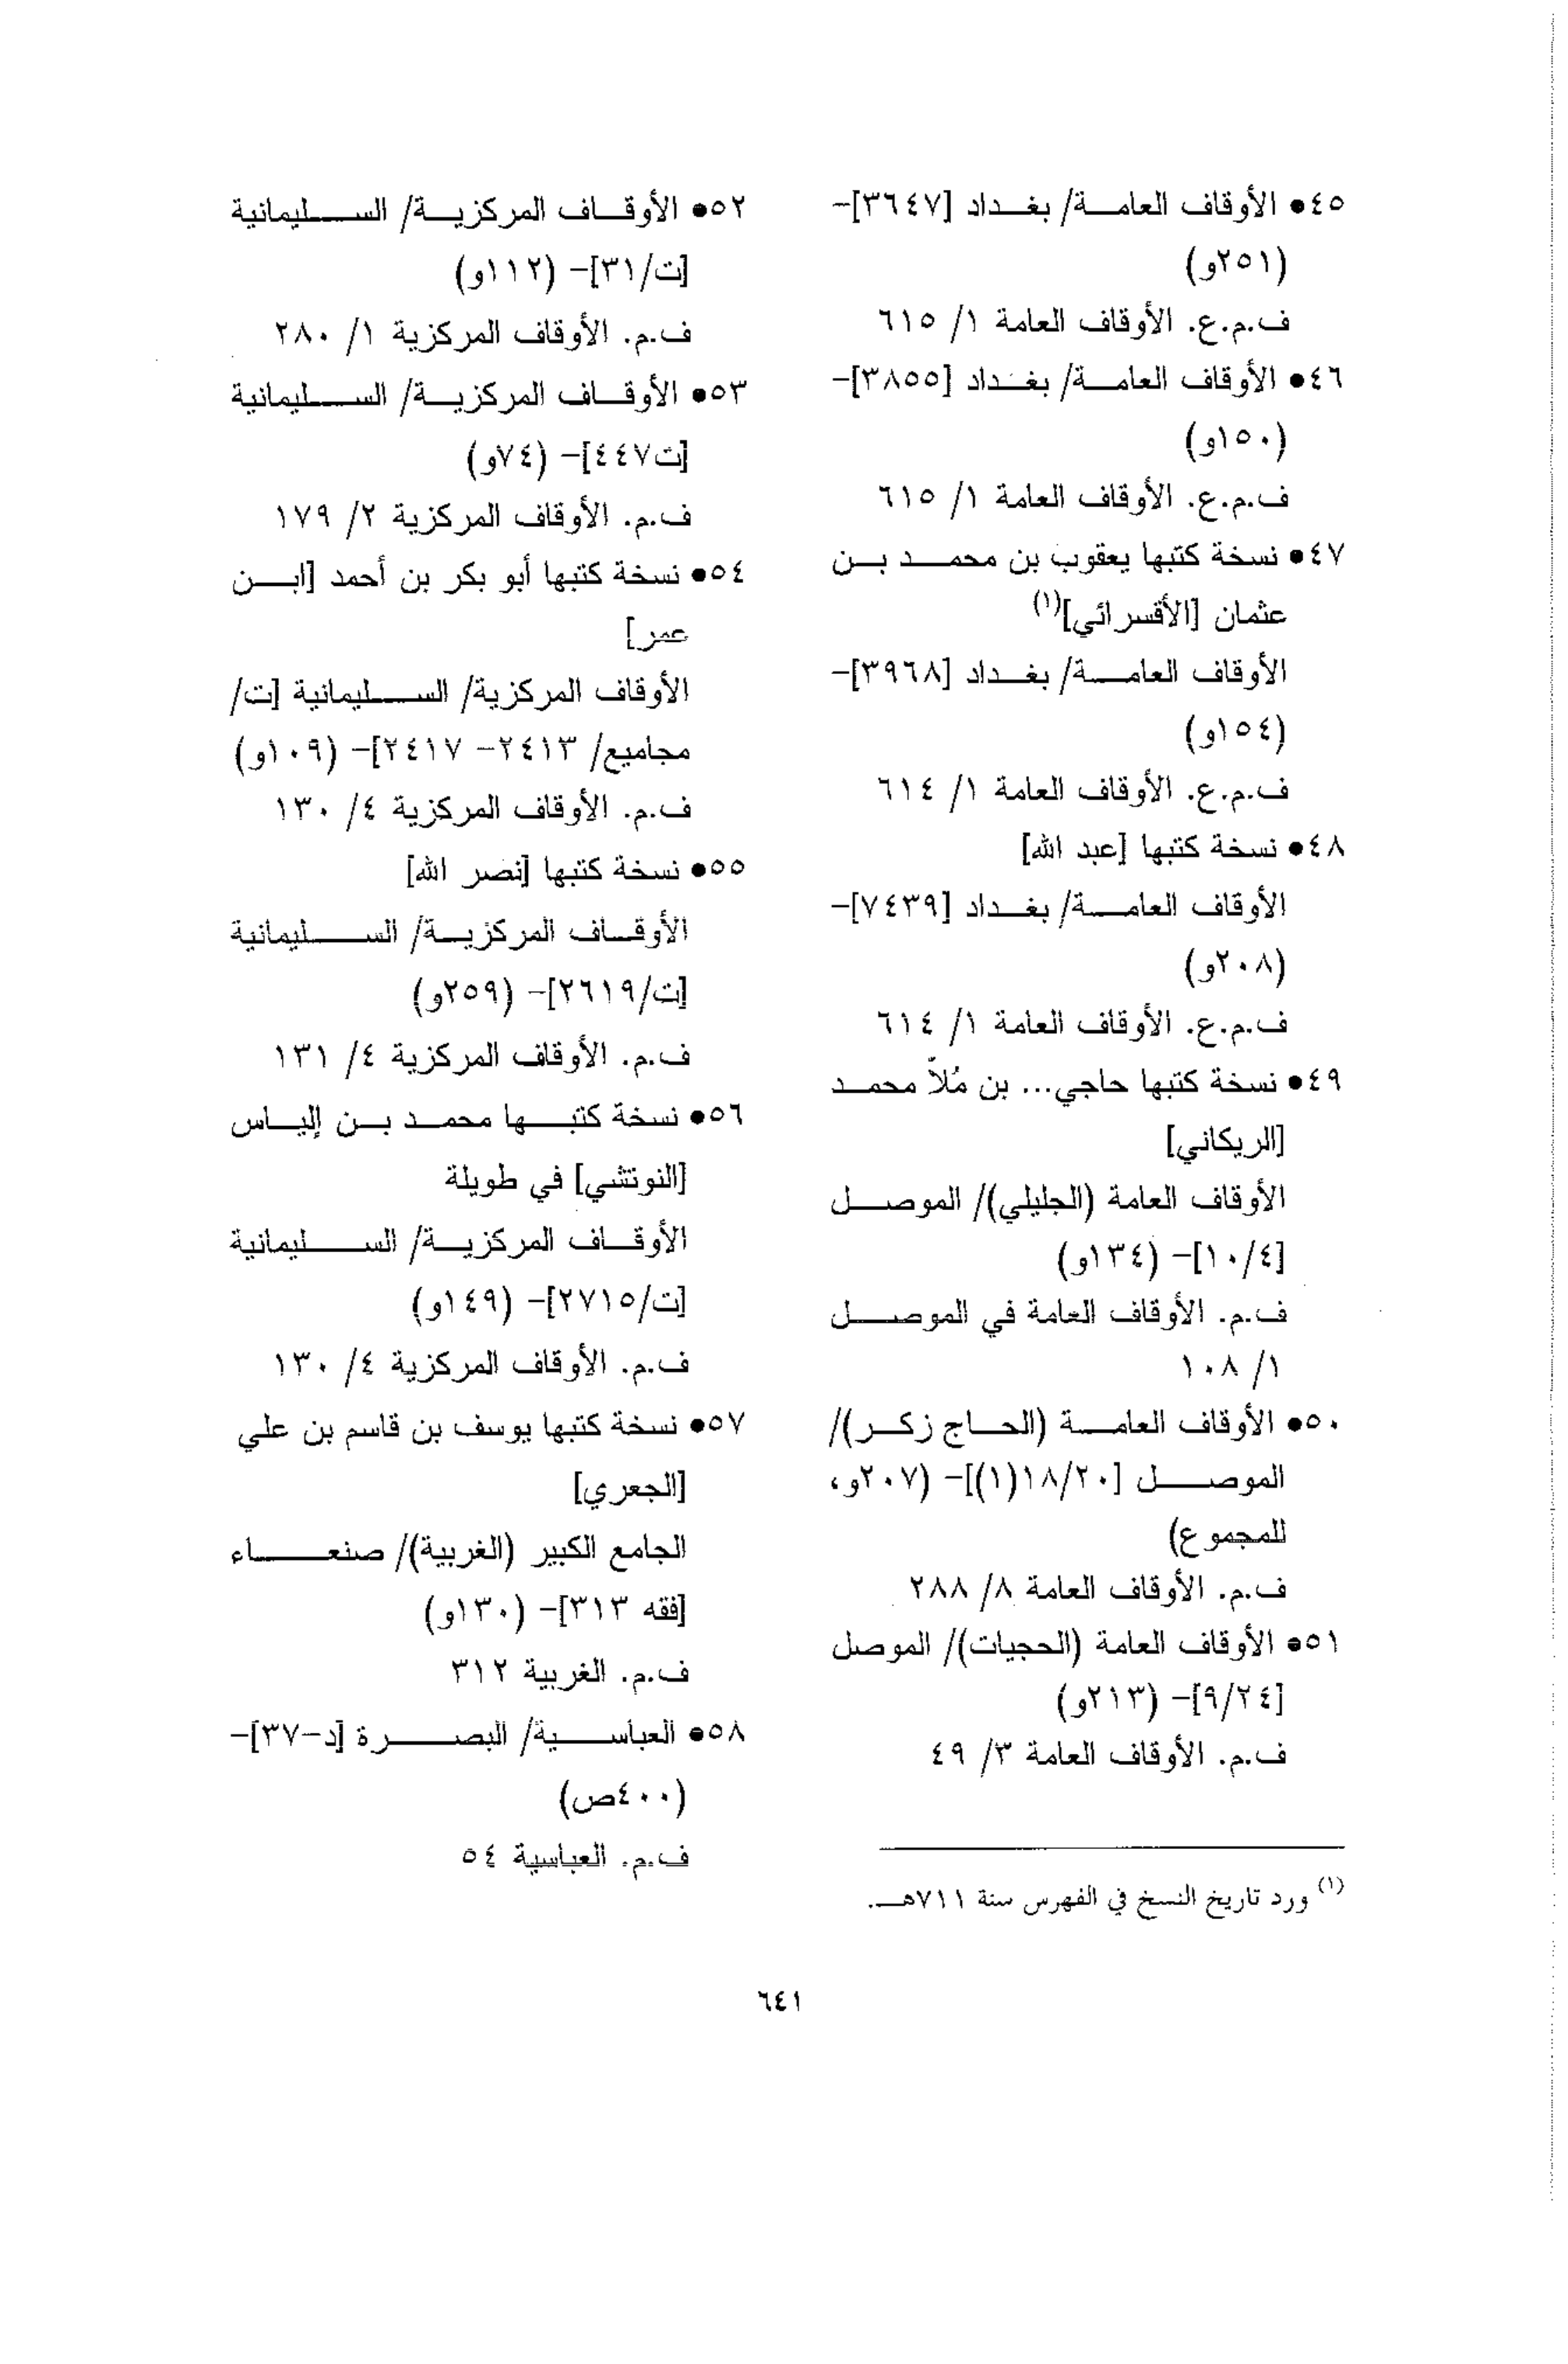 ٤٥● الأوقاف العامة/ بغداد [٣٦٤٧]-
(٢٥١و)
ف.م.ع. الأوقاف العامة ١/ ٦١٥
٤٦● الأوقاف العامة/ بغداد [٣٨٥٥]-
(١٥٠و)
ف.م.ع. الأوقاف العامة ١/ ٦١٥
٤٧● نسخة كتبها يعقوب بن محمد بن
عثمان [الأقسرائي](١)
الأوقاف العامة/ بغداد [٣٩٦٨]-
(١٥٤و)
ف.م.ع. الأوقاف العامة ١/ ٦١٤
٤٨● نسخة كتبها [عبد الله]
الأوقاف العامة/ بغداد [٧٤٣٩]-
(٢٠٨و)
ف.م.ع. الأوقاف العامة ١/ ٦١٤
٤٩● نسخة كتبها حاجي... بن مُلاّ محمد
[الريكاني]
الأوقاف العامة (الجليلي)/ الموصل
[١٠/٤]- (١٣٤و)
ف.م. الأوقاف العامة في الموصل
١/ ١٠٨
٥٠● الأوقاف العامة (الحاج زكر)/
الموصل [١٨/٢٠(١)]- (٢٠٧و،
للمجموع)
ف.م. الأوقاف العامة ٨/ ٢٨٨
٥١● الأوقاف العامة (الحجيات)/ الموصل
[٩/٢٤]- (٢١٣و)
ف.م. الأوقاف العامة ٣/ ٤٩
(١) ورد تاريخ النسخ في الفهرس سنة ٧١١هـ.
٥٢● الأوقاف المركزية/ السليمانية
[ت/٣١]- (١١٢و)
ف.م. الأوقاف المركزية ١/ ٢٨٠
٥٣● الأوقاف المركزية/ السليمانية
[ت٤٤٧]- (٧٤و)
ف.م. الأوقاف المركزية ٢/ ١٧٩
٥٤● نسخة كتبها أبو بكر بن أحمد [ابن
عمر]
الأوقاف المركزية/ السليمانية [ت/
مجاميع/ ٢٤١٣- ٢٤١٧]- (١٠٩و)
ف.م. الأوقاف المركزية ٤/ ١٣٠
٥٥● نسخة كتبها [نصر الله]
الأوقاف المركزية/ السليمانية
[ت/٢٦١٩]- (٢٥٩و)
ف.م. الأوقاف المركزية ٤/ ١٣١
٥٦● نسخة كتبها محمد بن إلياس
[النوتشي] في طويلة
الأوقاف المركزية/ السليمانية
[ت/٢٧١٥]- (١٤٩و)
ف.م. الأوقاف المركزية ٤/ ١٣٠
٥٧● نسخة كتبها يوسف بن قاسم بن علي
[الجعري]
الجامع الكبير (الغربية)/ صنعاء
[فقه ٣١٣]- (١٣٠و)
ف.م. الغربية ٣١٢
٥٨● العباسية/ البصرة [د-٣٧]-
(٤٠٠ص)
ف.م. العباسية ٥٤
٦٤١